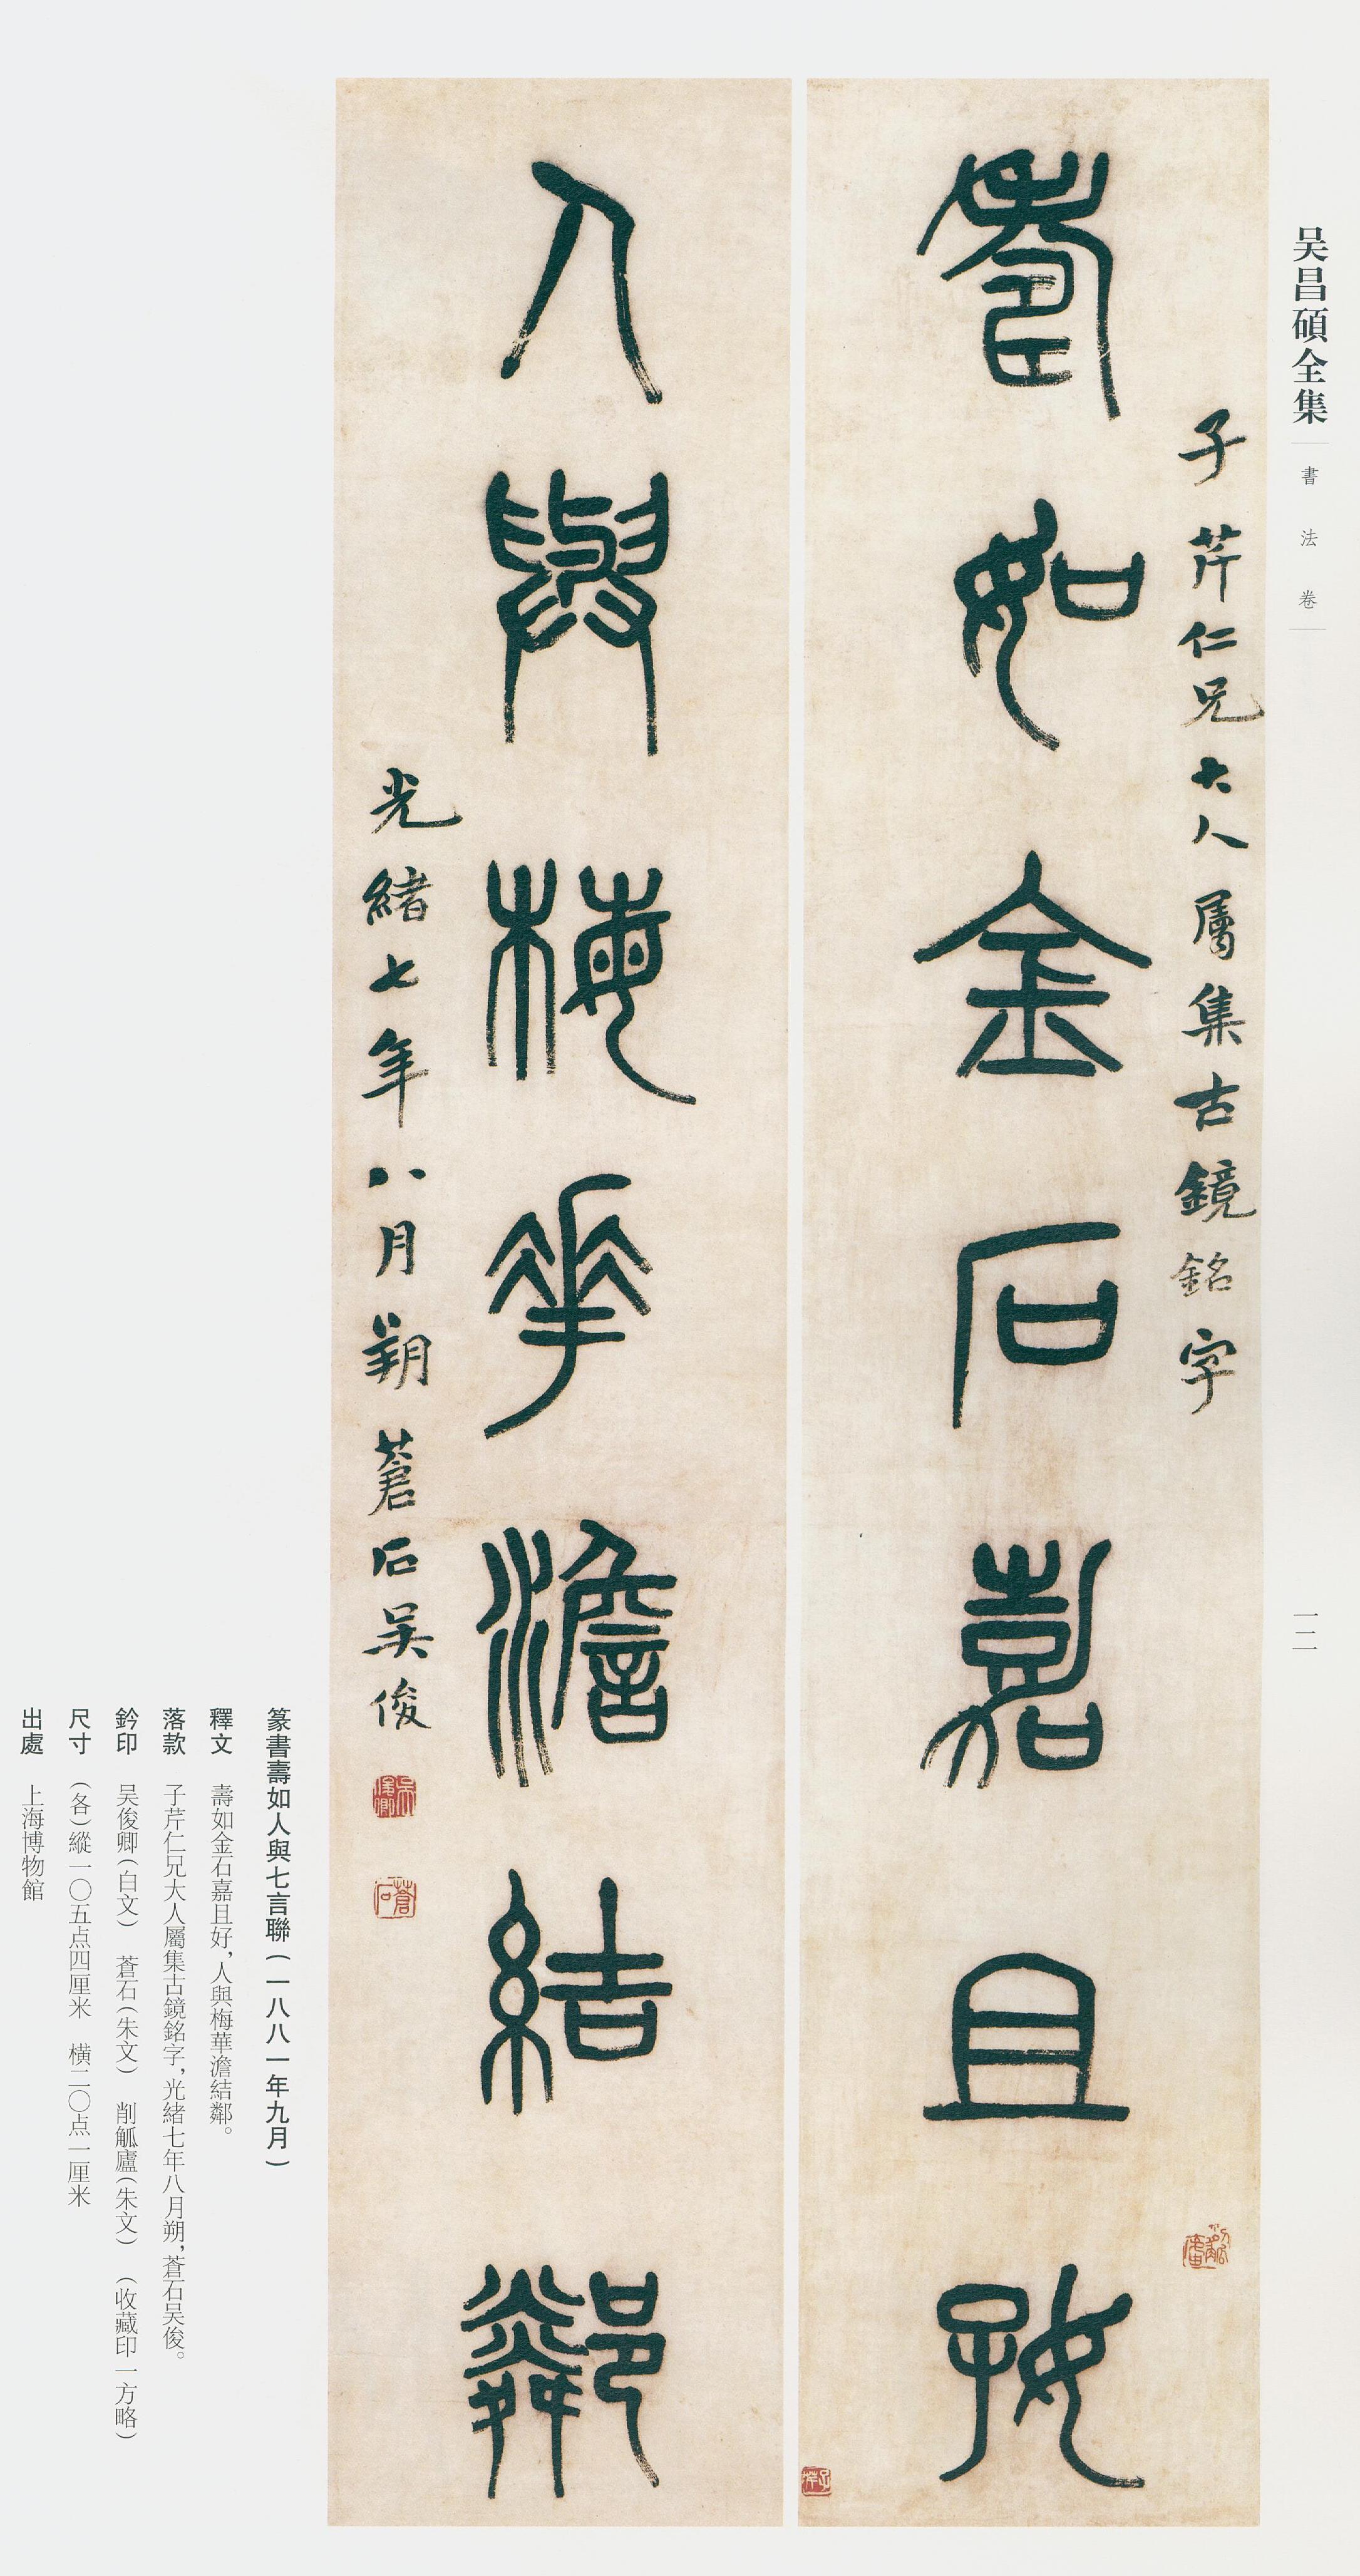 吴昌碩全集
書法卷
一二
子芹仁兄大人屬集古鏡銘字
壽如金石嘉且好
人與梅華澹結鄰
光緒七年八月朔蒼石吴俊
吴俊卿
蒼石
篆書壽如人與七言聯(一八八一年九月)
釋文 壽如金石嘉且好,人與梅華澹結鄰。
落款 子芹仁兄大人屬集古鏡銘字,光緒七年八月朔,蒼石吴俊。
鈐印 吴俊卿(白文) 蒼石(朱文) 削觚廬(朱文) (收藏印一方略)
尺寸 (各)縱一〇五点四厘米 橫二〇点一厘米
出處 上海博物館